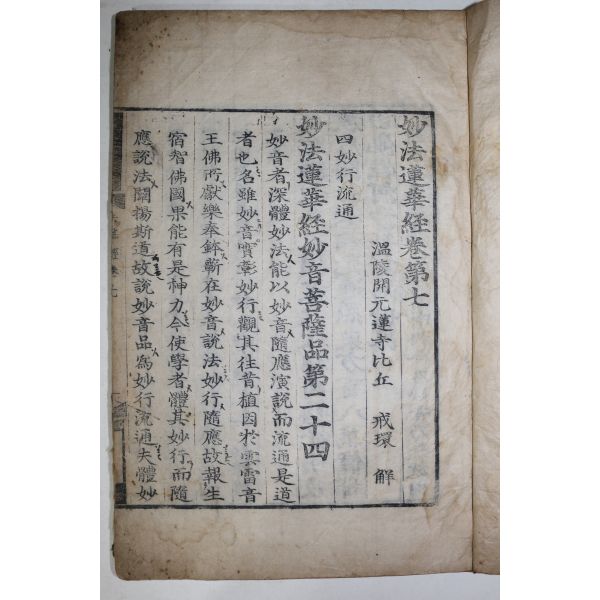 妙法蓮華經卷第七
溫陵開元蓮寺比丘 戒環 解
四妙行流通
妙法蓮華經妙音菩薩品第二十四
妙音者深體妙法能以妙音隨應演說而流通是道
者也名雖妙音實彰妙行觀其往昔植因於雲雷音
王佛所獻樂奉鉢蘄在妙音說法妙行隨應故報生
宿智佛國果能有是神力今使學者體其妙行而隨
應說法闡揚斯道故說妙音品爲妙行流通夫體妙